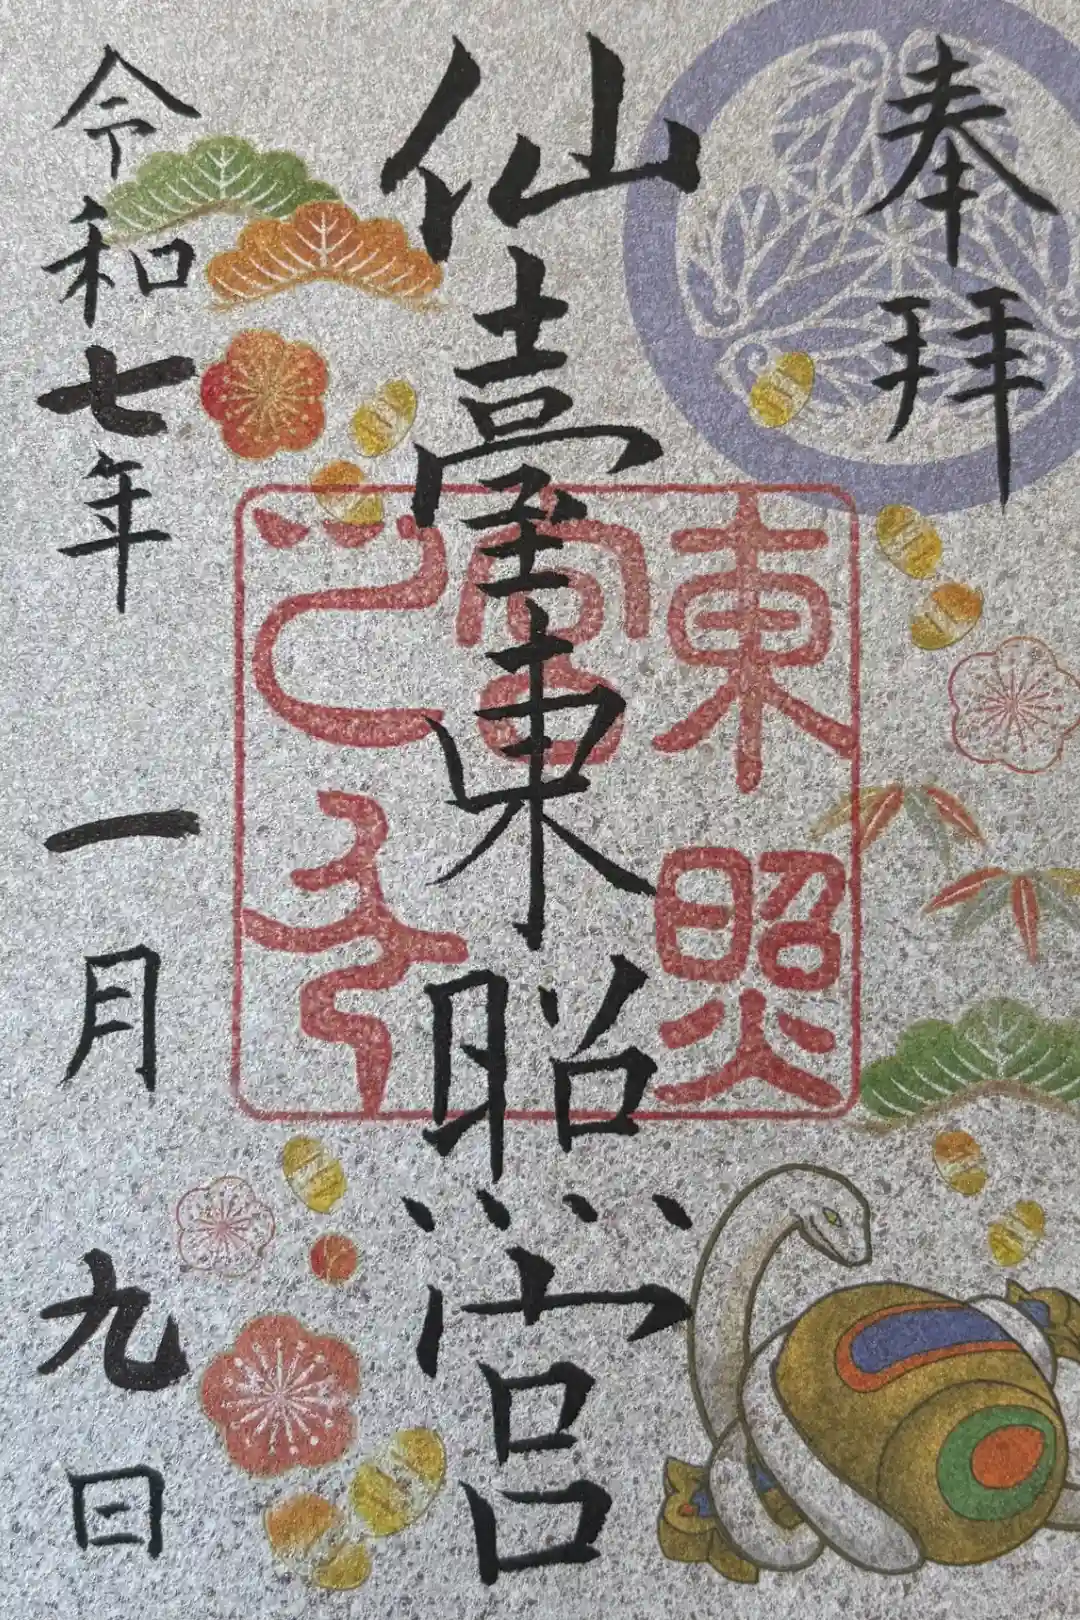 奉拝
仙臺東照宮
東照
宮
令和七年一月九日